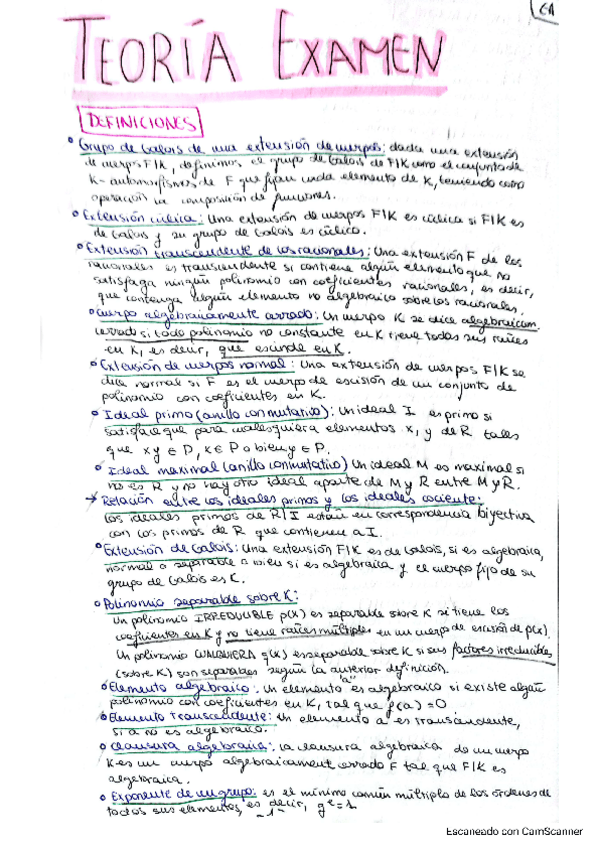 TEORÍA EXAMEN
DEFINICIONES
Grupo de Galois de una extensión de cuerpos: dada una extensión
de cuerpos F|K, definimos el grupo de Galois de F|K como el conjunto de
K-automorfismos de F que fijan cada elemento de K, teniendo como
operación la composición de funciones.
Extensión cíclica: Una extensión de cuerpos F|K es cíclica si F|K es
de Galois y su grupo de Galois es cíclico.
Extensión transcendente de los racionales: Una extensión F de los
racionales es transcendente si contiene algún elemento que no
satisfaga ningún polinomio con coeficientes racionales, es decir,
que contenga algún elemento no algebraico sobre los racionales.
Cuerpo algebraicamente cerrado: Un cuerpo K se dice algebraicam.
cerrado si todo polinomio no constante en K tiene todas sus raíces
en K, es decir, que escinde en K.
Extensión de cuerpos normal: Una extensión de cuerpos F|K se
dice normal si F es el cuerpo de escisión de un conjunto de
polinomio con coeficientes en K.
Ideal primo (anillo conmutativo): Un ideal I es primo si
satisface que para cualesquiera elementos x, y de R tales
que xy ∈ P, x ∈ P o bien y ∈ P.
Ideal maximal (anillo conmutativo) Un ideal M es maximal si
no es R y no hay otro ideal aparte de M y R entre M y R.
→ Relación entre los ideales primos y los ideales cociente:
Los ideales primos de R/I están en correspondencia biyectiva
con los primos de R que contienen a I.
Extensión de Galois: Una extensión F|K es de Galois, si es algebraica,
normal o separable o bien si es algebraica y el cuerpo fijo de su
grupo de Galois es K.
Polinomio separable sobre K:
Un polinomio IRREDUCIBLE p(x) es separable sobre K si tiene los
coeficientes en K y no tiene raíces múltiples en un cuerpo de escisión de p(x).
Un polinomio CUALQUIERA q(x) es separable sobre K si sus factores irreducibles
(sobre K) son separables según la anterior definición.
Elemento algebraico: Un elemento "a" es algebraico si existe algún
polinomio con coeficientes en K, tal que p(a) = 0
Elemento transcendente: Un elemento a es transcendente,
si a no es algebraico.
Clausura algebraica: La clausura algebraica de un cuerpo
K es un cuerpo algebraicamente cerrado F tal que F|K es
algebraica.
Exponente de un grupo: es el mínimo común múltiplo de los órdenes de
todos sus elementos, es decir, gᵉ = 1.
-1-
Escaneado con CamScanner